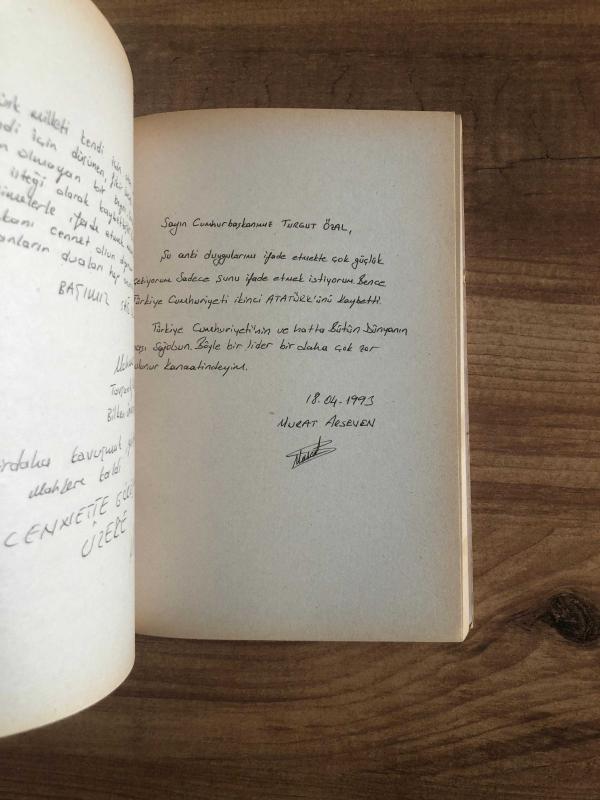 milleti kendi için
için düşünen, fikir
olmayan bir
isteği olarak
ifade etmek
cennet olsun
duaları hep
BAŞIMIZ
kavuşmak
Mahşere kaldı
CENNETTE
ÜZERE
Sayın Cumhurbaşkanımız TURGUT ÖZAL,
Şu anki duygularımı ifade etmekte çok güçlük
çekiyorum Sadece şunu ifade etmek istiyorum Bence
Türkiye Cumhuriyeti ikinci ATATÜRK'ünü kaybetti.
Türkiye Cumhuriyeti'nin ve hatta Bütün Dünyanın
aşı Sağolsun. Böyle bir lider bir daha çok zor
ulunur kanaatindeyim.
18.04-1993
MURAT ARSEVEN